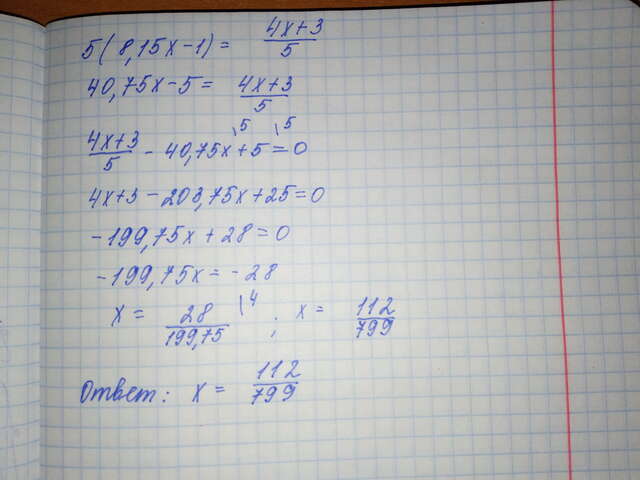 5(8,15x-1) = \frac{4x+3}{5}
40,75x-5 = \frac{4x+3}{5}
\frac{4x+3}{5} - 40,75x \5 + 5 \5 = 0
4x+3 - 203,75x+25=0
-199,75x + 28 = 0
-199,75x = -28
x = \frac{28}{199,75} \4 ; x = \frac{112}{799}
Ответ: x = \frac{112}{799}